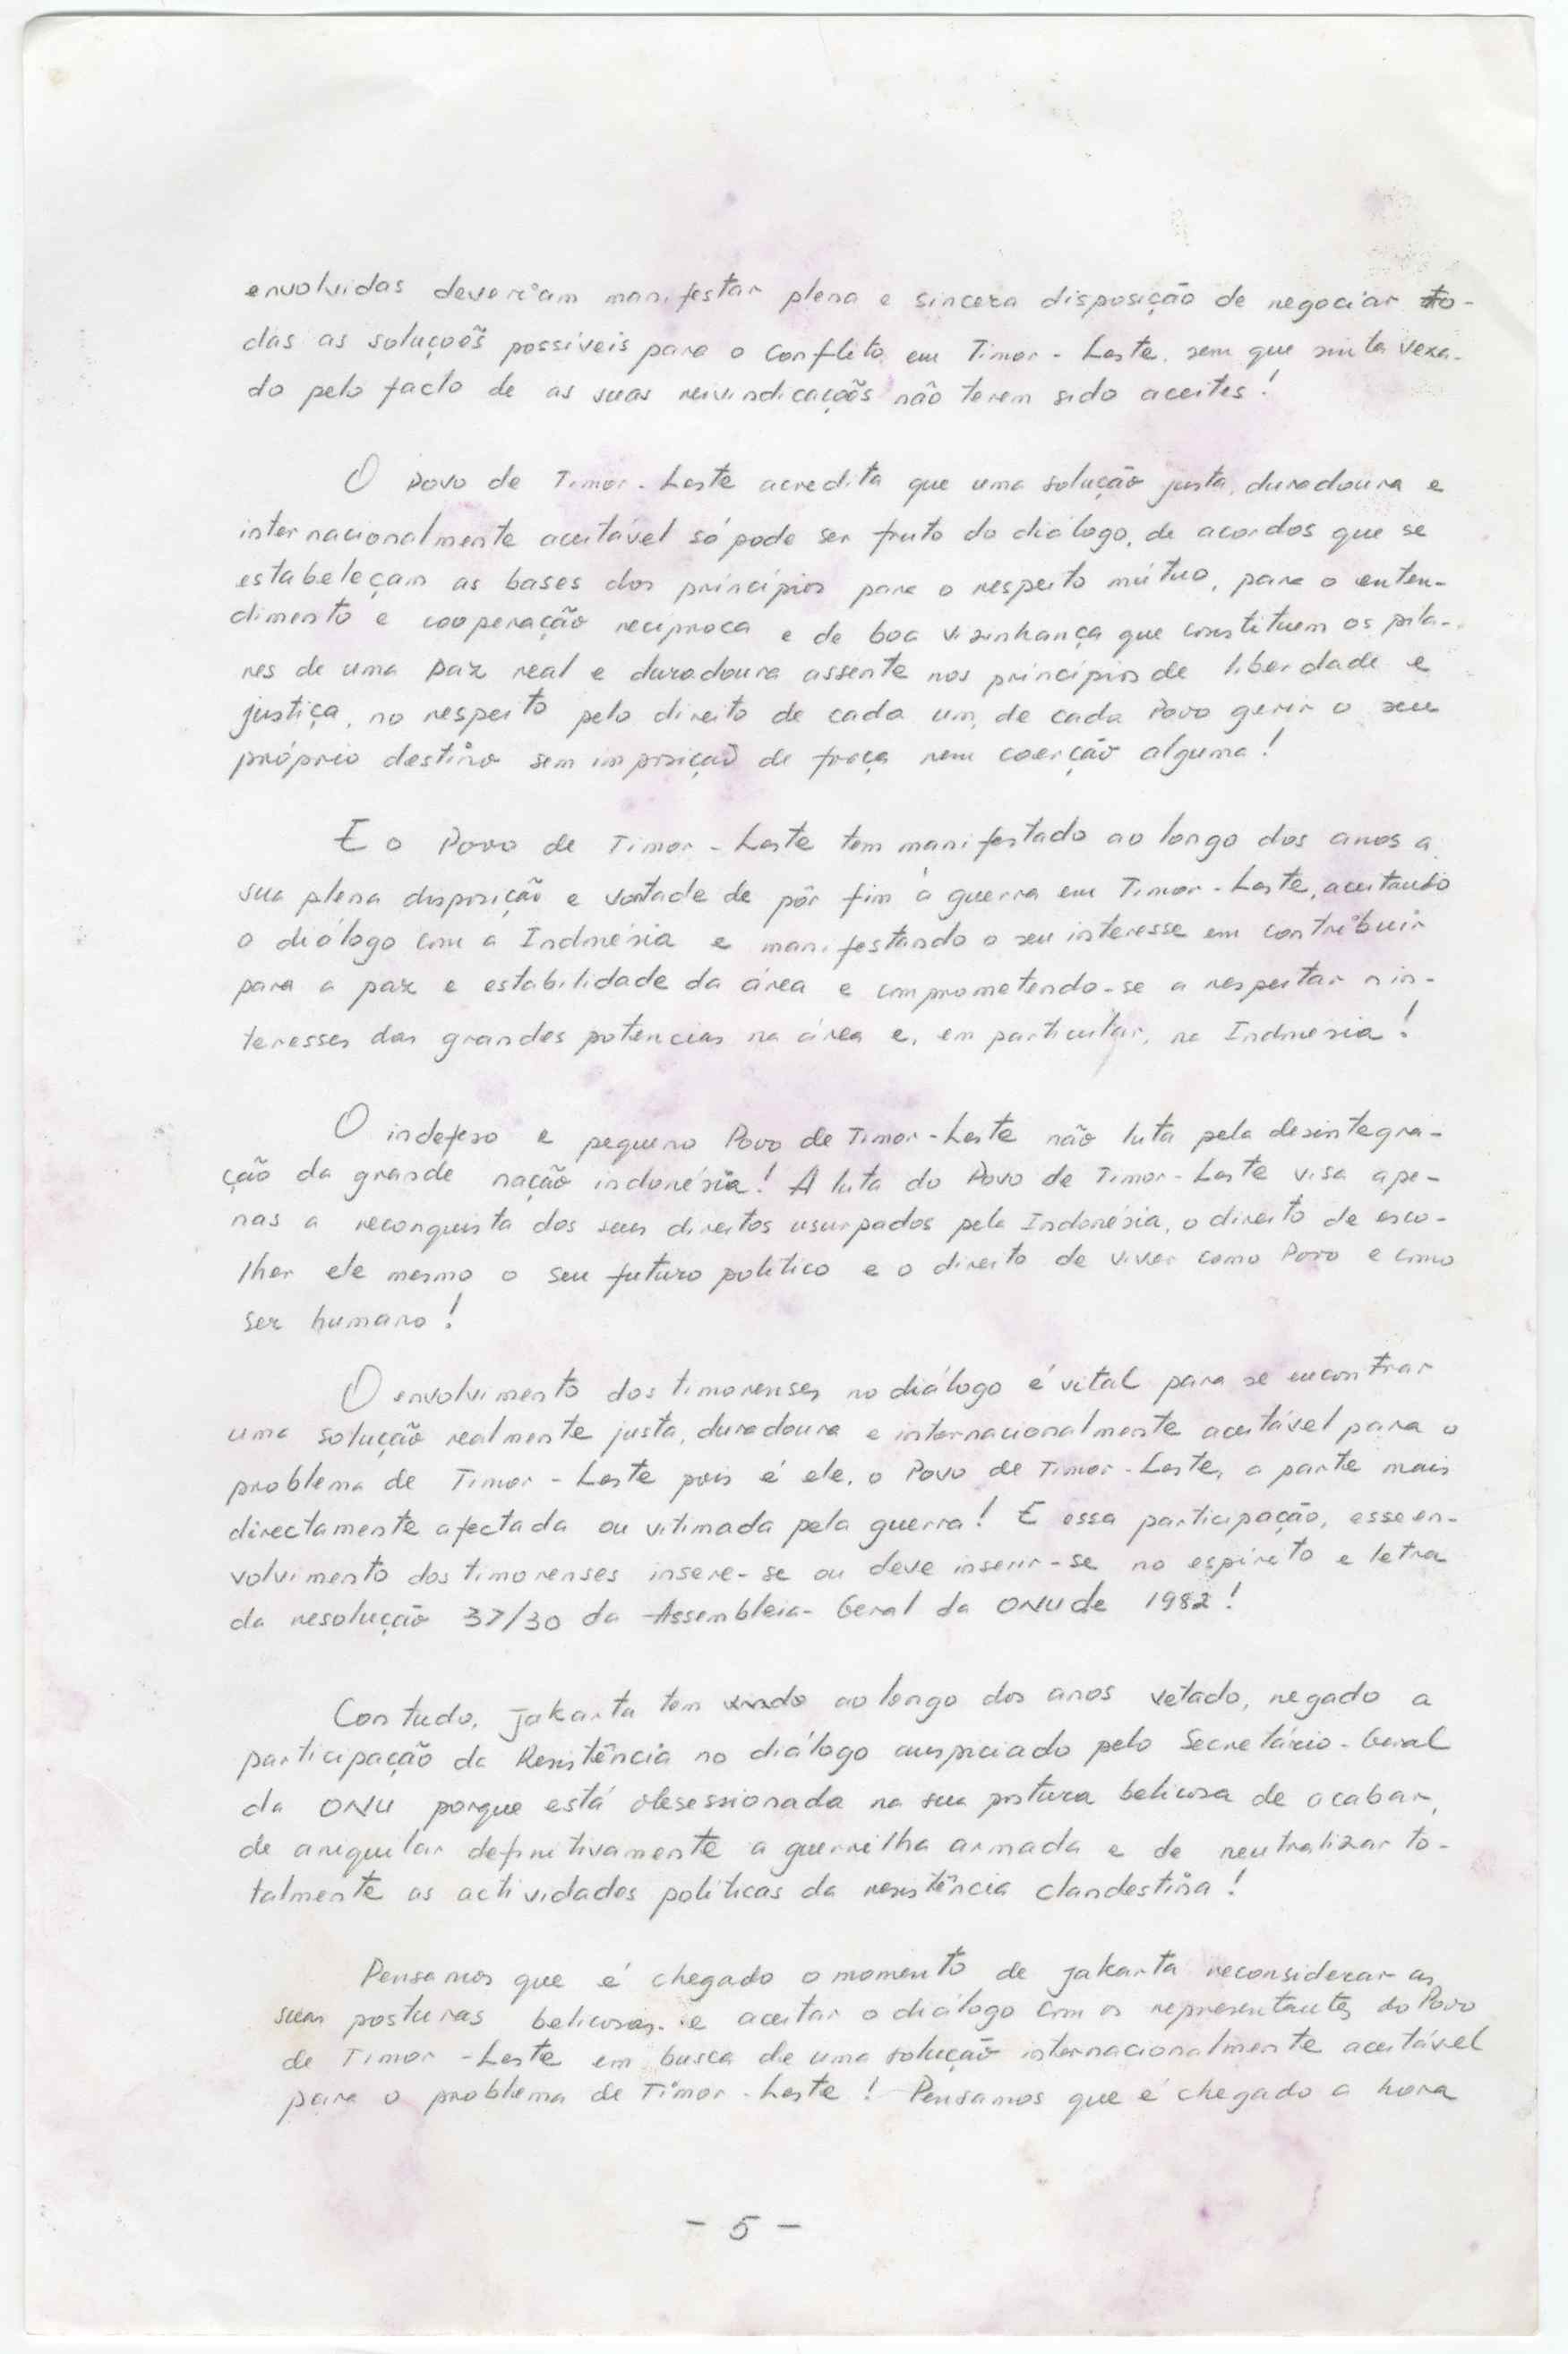 envolvidas deveriam manifestar plena e sincera disposição de negociar to-
das as soluções possíveis para o conflito em Timor-Leste, sem que sinta vexa-
do pelo facto de as suas reivindicações não terem sido aceites!
O Povo de Timor-Leste acredita que uma solução justa, duradoura e
internacionalmente aceitável só pode ser fruto do diálogo, de acordos que se
estabeleçam as bases dos princípios para o respeito mútuo, para o enten-
dimento e cooperação recíproca e de boa vizinhança que constituem os pila-
res de uma paz real e duradoura assente nos princípios de liberdade e
justiça, no respeito pelo direito de cada um, de cada Povo gerir o seu
próprio destino sem imposição de força nem coerção alguma!
E o Povo de Timor-Leste tem manifestado ao longo dos anos a
sua plena disposição e vontade de pôr fim à guerra em Timor-Leste, aceitando
o diálogo com a Indonésia e manifestando o seu interesse em contribuir
para a paz e estabilidade da área e comprometendo-se a respeitar o in-
teresses das grandes potências na área e, em particular, na Indonésia!
O indefeso e pequeno Povo de Timor-Leste não luta pela desintegra-
ção da grande nação indonésia! A luta do Povo de Timor-Leste visa ape-
nas a reconquista dos seus direitos usurpados pela Indonésia, o direito de esco-
lher ele mesmo o seu futuro político e o direito de viver como Povo e como
ser humano!
O envolvimento dos timorenses no diálogo é vital para se encontrar
uma solução realmente justa, duradoura e internacionalmente aceitável para o
problema de Timor-Leste pois é ele, o Povo de Timor-Leste, a parte mais
directamente afectada ou vitimada pela guerra! E essa participação, esse en-
volvimento dos timorenses insere-se ou deve inserir-se no espírito e letra
da resolução 37/30 da Assembleia-Geral da ONU de 1982!
Contudo, Jakarta tem ao longo dos anos vetado, negado a
participação da Resistência no diálogo auspiciado pelo Secretário-Geral
da ONU porque está obsessionada na sua postura belicosa de acabar,
de aniquilar definitivamente a guerrilha armada e de neutralizar to-
talmente as actividades políticas da resistência clandestina!
Pensamos que é chegado o momento de Jakarta reconsiderar as
suas posturas belicosas e aceitar o diálogo com os representantes do Povo
de Timor-Leste em busca de uma solução internacionalmente aceitável
para o problema de Timor-Leste! Pensamos que é chegado a hora
- 5 -